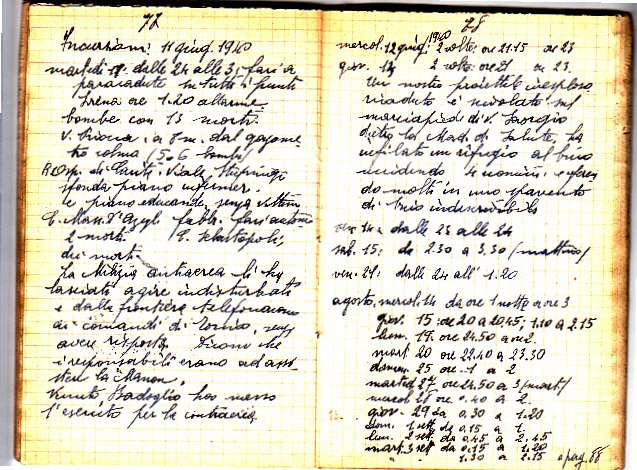 77
Incursioni: 11 giug. 1940
martedì 11: dalle 24 alle 3, fari a
paracadute in tutti i punti
Sirena ore 1.20 allarme
bombe con 13 morti.
V. Priocca: a 8 m. dal gazome
tro colma (5-6 bombe)
R. Osp. di Carità. Viale Stupinigi
sponda piano infermer.
e piano educande, senza vittime
C. Mass. d'Azegl. fabbr. fari automo
2 morti. C. Sebastopoli,
due morti.
La Milizia antiaerea li ha
lasciati agire indisturbati
e dalla frontiera telefonarono
ai comandi di Torino, senza
avere risposta. Dicono che
i responsabili erano ad assi
stere la Manon.
Badoglio ha messo
l'esercito per la contraerea
78
mercol. 12 giug. 1940 2 volte: ore 21.15 ore 23
giov. 13 2 volte: ore 21 ore 23.
Un nostro proiettile inesploso
ricaduto è rivolato sul
marciapiedi di V.
dietro la Mad. di Salute, ha
infilato un rifugio al buio
uccidendo 4 uomini e feren
do molti in uno spavento
di buio indescrivibile
ven. 14: dalle 23 alle 24
sab. 15: da 2.30 a 3.30 (mattino)
ven. 21: dalle 24 all' 1.20
agosto. mercol. 14 da ore 1 notte a ore 3
giov. 15: ore 20 a 20.45; 1.10 a 2.15
lun. 19: ore 24.50 a ore 2.
mart. 20 ore 22.40 a 23.30
domen. 25 ore 1 a 2
marted 27 ore 24.50 a 3 (matt)
mercol 28 ore 0.40 a 2
giov. 29 da 0.30 a 1.20
dom. 1 sett. da 0.15 a 1.
lun. 2 sett. da 0.45 a 2.45
mart. 3 sett da 0.15 a 1.20
" " 1.30 a 2.15 a pag. 88